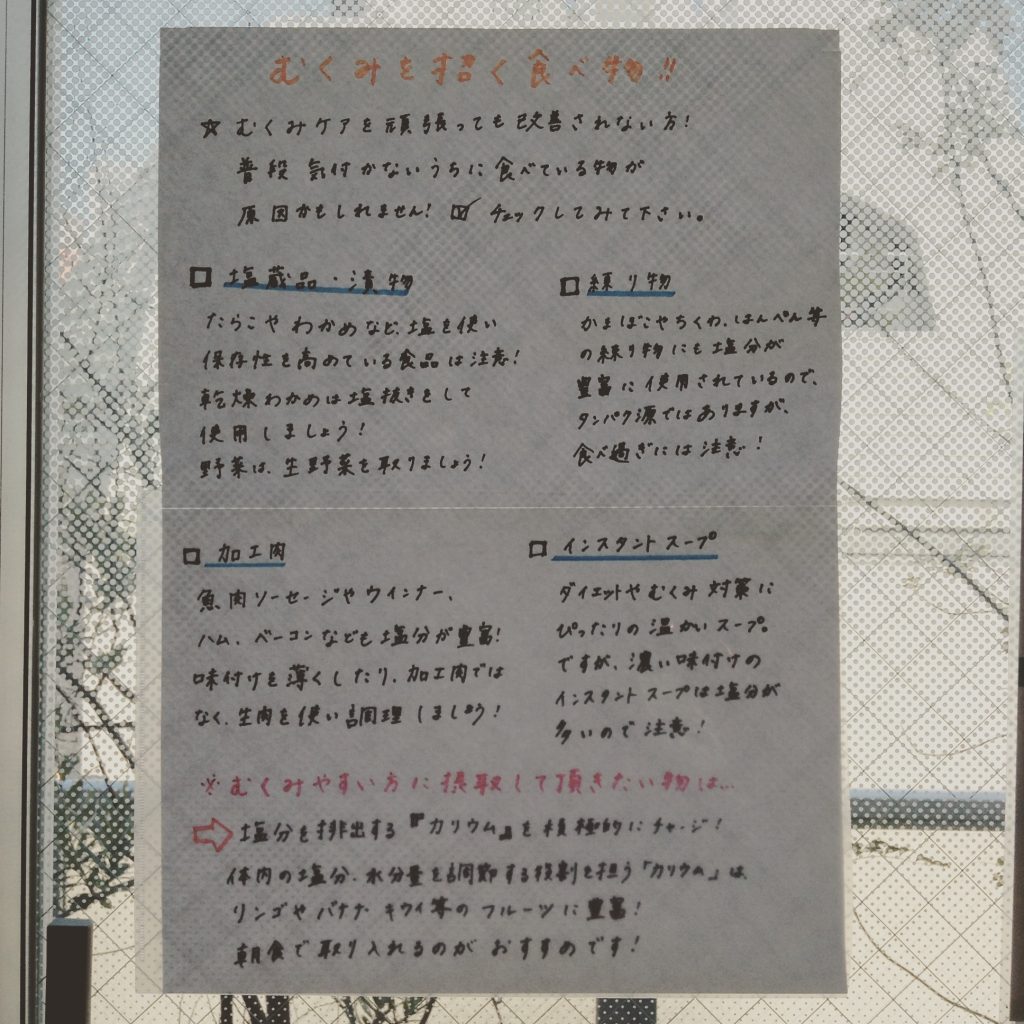 むくみを招く食べ物!!
☆ むくみケアを頑張っても改善されない方!
普段 気付かないうちに食べている物が
原因かもしれません! ☑ チェックしてみて下さい。
□ 塩蔵品・漬物
たらこやわかめなど、塩を使い
保存性を高めている食品は注意!
乾燥わかめは塩抜きをして
使用しましょう!
野菜は、生野菜を取りましょう!
□ 練り物
かまぼこやちくわ、はんぺん等
の練り物にも塩分が
豊富に使用されているので、
タンパク源ではありますが、
食べ過ぎには注意!
□ 加工肉
魚肉ソーセージやウインナー、
ハム、ベーコンなども塩分が豊富!
味付けを薄くしたり、加工肉では
なく、生肉を使い調理しましょう!
□ インスタントスープ
ダイエットやむくみ対策に
ぴったりの温かいスープ。
ですが、濃い味付けの
インスタントスープは塩分が
多いので注意!
※むくみやすい方に摂取して頂きたい物は…
⇨ 塩分を排出する『カリウム』を積極的にチャージ!
体内の塩分、水分量を調節する役割を担う「カリウム」は、
リンゴやバナナ キウイ等のフルーツに豊富!
朝食で取り入れるのが おすすめです!